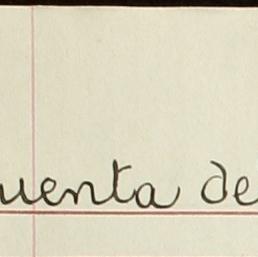 uenta de